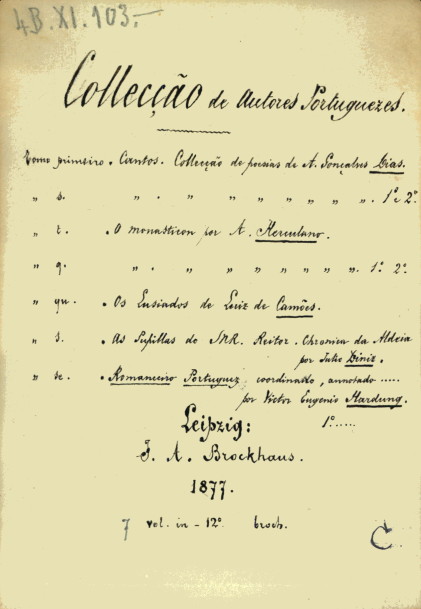 4B.XI.103.-
Collecção de Autores Portuguezes.
Tomo primeiro. Cantos. Collecção de poesias de A. Gonçalves Dias.
" s. " . " " " " " " " " . 1º e 2º.
" t. . O monasticon por A. Herculano.
" q. " . " " " " " " " . 1º 2º.
" qu. . Os Lusiados de Luiz de Camões.
" s. . As Pupillas do SNR. Reitor. Chronica da Aldeia
por Julio Diniz.
" se. . Romanceiro Portuguez coordinado, annotado .....
por Victor Eugenio Hardung.
1º.....
Leipzig:
F. A. Brockhaus.
1877.
7 vol. in - 12º broch.
C.